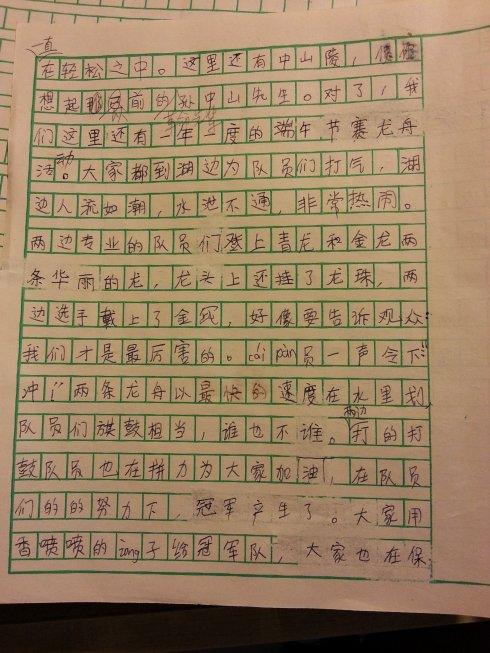 直
在轻松之中。这里还有中山陵，
想起 前的孙中山先生。对了，我
们这里还有一年一度的端午节赛龙舟
活动。大家都到湖边为队员们打气，湖
边人流如潮，水泄不通，非常热闹。
两边专业的队员们登上青龙和金龙两
条华丽的龙，龙头上还挂了龙珠，两
边选手戴上了金 ，好像要告诉观众：
我们才是最厉害的。cái pàn员一声令下：
冲！”两条龙舟以最快的速度在水里划，
队员们旗鼓相当，谁也不谁。两边打的打
鼓队员也在拼力为大家加油，在队员
们的的努力下，冠军产生了。大家用
香喷喷的zòng子给冠军队，大家也在保